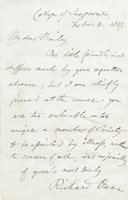 College of Surgeons
Feb. 6. 1842
My dear Bailey
Our little friendly meet
suffers much by your
absence, but I am chiefly
grieved at the cause: you
are too valuable — too
unique a member of Society
to be spared by illness, without
the concern of all, and especially
of yours most truly
Richard Owen